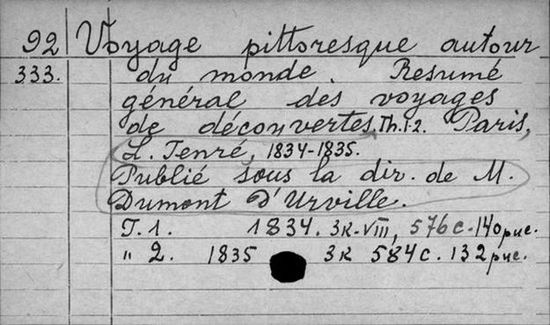 92 Voyage pittoresque autour
333. du monde. Resumé
général des voyages
de découvertes. Th.1-2. Paris,
L. Tenré, 1834-1835.
Publié sous la dir. de M.
Dumont D'Urville.
T. 1. 1834. 3к-VIII, 576 с. 140 рис.
" 2. 1835 3к 584 с. 132 рис.